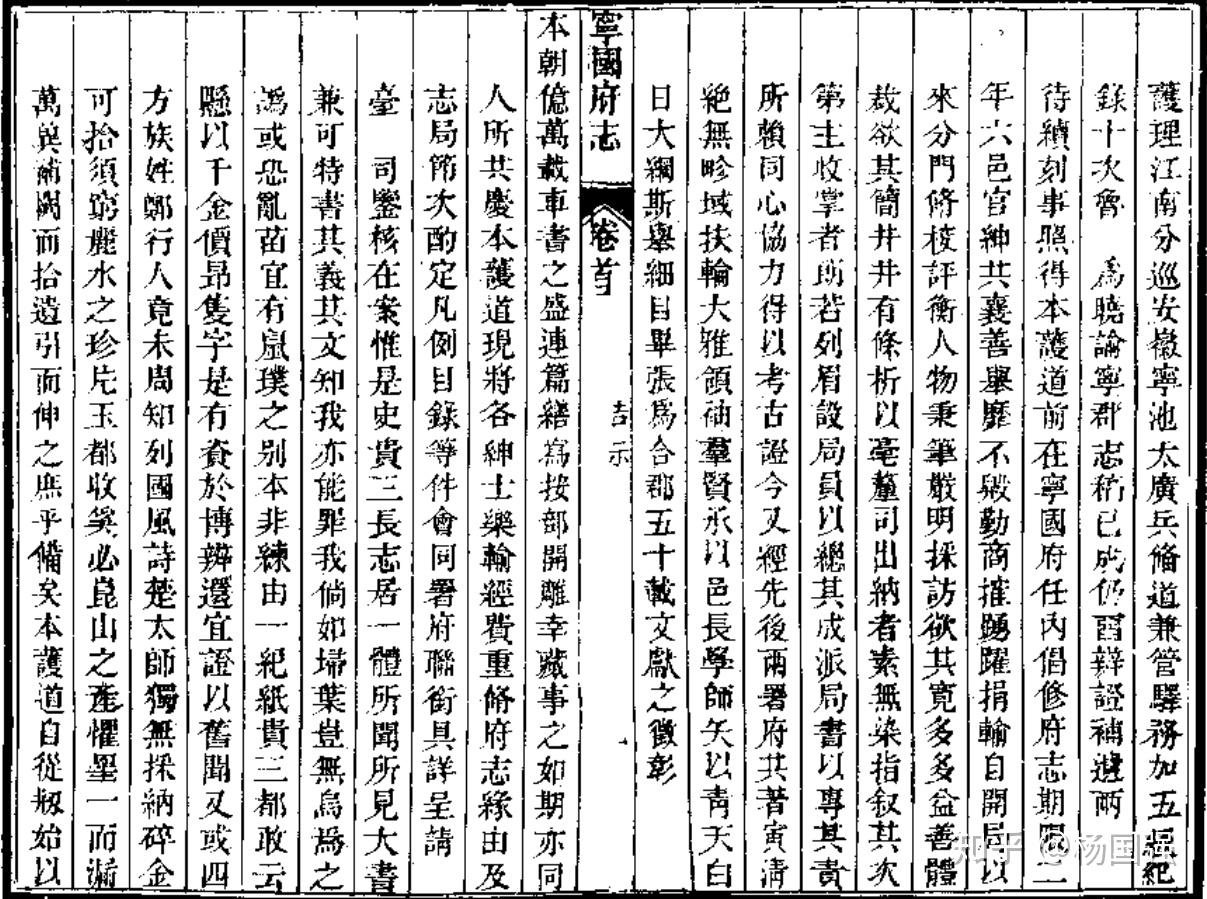 護理江南分巡安徽寧池太廣兵備道兼管驛務加五級紀
錄十次魯 為曉諭寧郡志稿已成仍畱辯證補遺兩
待續刻事照得本護道前在寧國府任內倡修府志期限二
年六邑官紳共襄善舉靡不殷勤商搉踴躍捐輸自開局以
來分門脩校評衡人物秉筆嚴明採訪欲其寬多多益善體
裁欲其簡井井有條析以毫釐司出納者素無染指叙其次
第主收掌者朗若列眉設局員以總其成派局書以專其責
所賴同心協力得以考古證今又經先後兩署府共著寅清
絶無畛域扶輪大雅領袖羣賢承以邑長學師矢以青天白
日大綱斯舉細目畢張為合郡五十載文獻之徵彰
寧國府志 卷首 告示
本朝億萬載車書之盛連篇繕寫按部開雕幸蕆事之如期亦同
人所共慶本護道現將各紳士樂輸經費重脩府志緣由及
志局節次酌定凡例目錄等件會同署府聯銜具詳呈請
臺 司鑒核在案惟是史貴三長志居一體所聞所見大書
兼可特書其義其文知我亦能罪我倘如埽葉豈無烏焉之
譌或恐亂苗宜有鼠璞之别本非練由一紀紙貴三都敢云
懸以千金價昂隻字是有資於博辨還宜證以舊聞又或四
方族姓鄉行人竟未周知列國風詩楚太師獨無採納碎金
可拾須窮麗水之珍片玉都收奚必崑山之產懼星一而漏
萬與補闕而拾遺引而伸之庶乎備矣本護道自從剏始以
知乎 @杨国